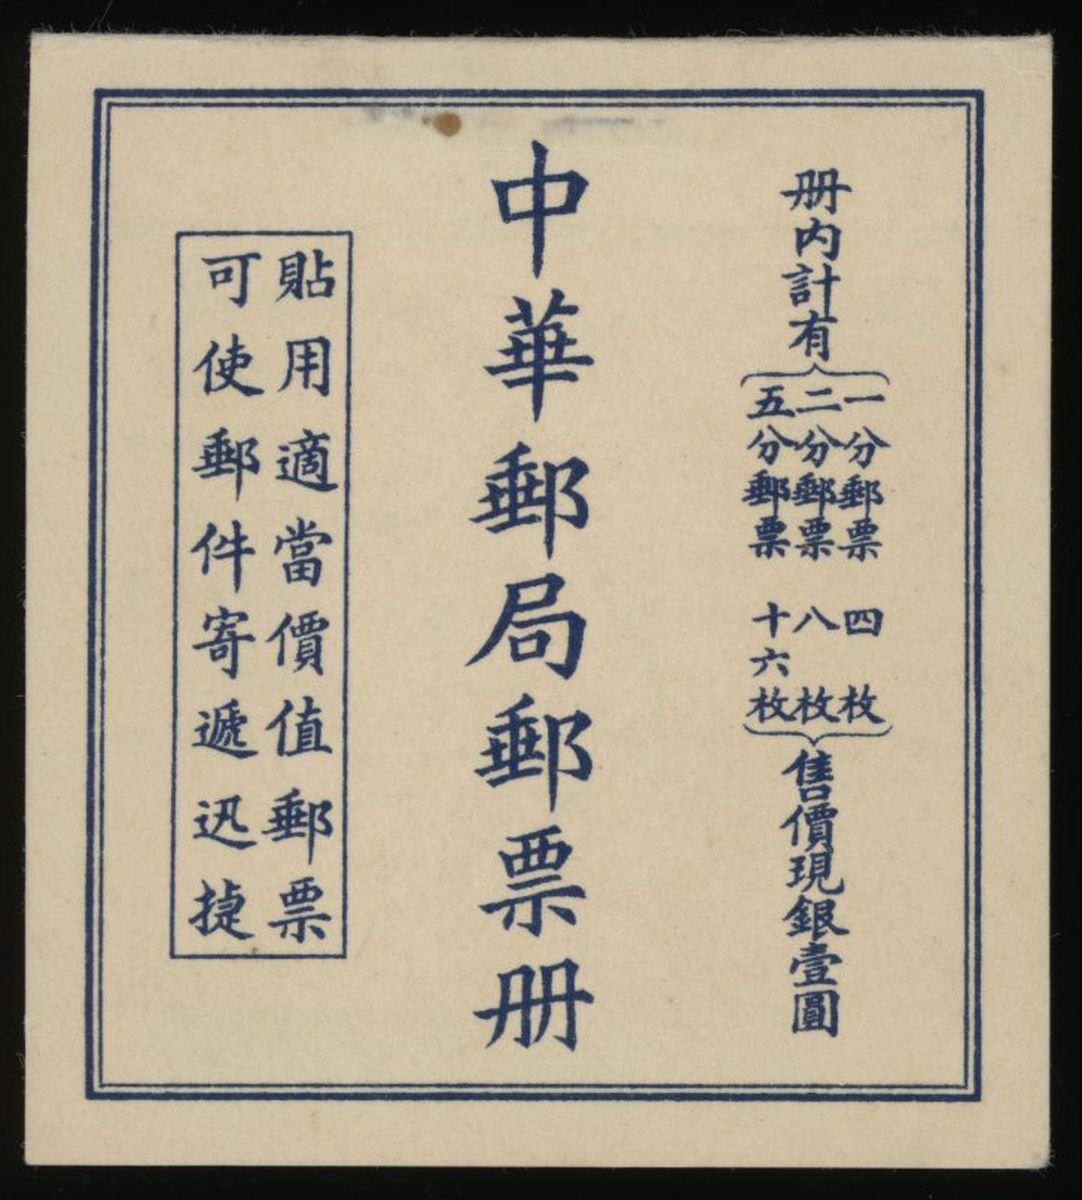 册内計有
一分郵票 四枚
二分郵票 八枚
五分郵票 十六枚
售價現銀壹圓
中華郵局郵票册
貼用適當價值郵票
可使郵件寄遞迅捷